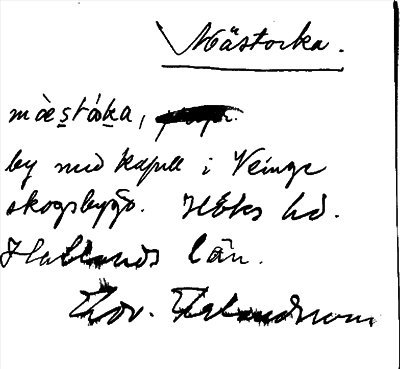 Mästocka.
mæ̀stáka,
by med kapell i Veinge
skogsbygd. Höks hd.
Hallands län.